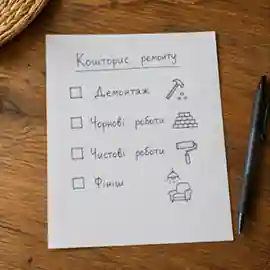 Кошторис ремонту
Демонтаж
Чорнові роботи
Чистові роботи
Фініш